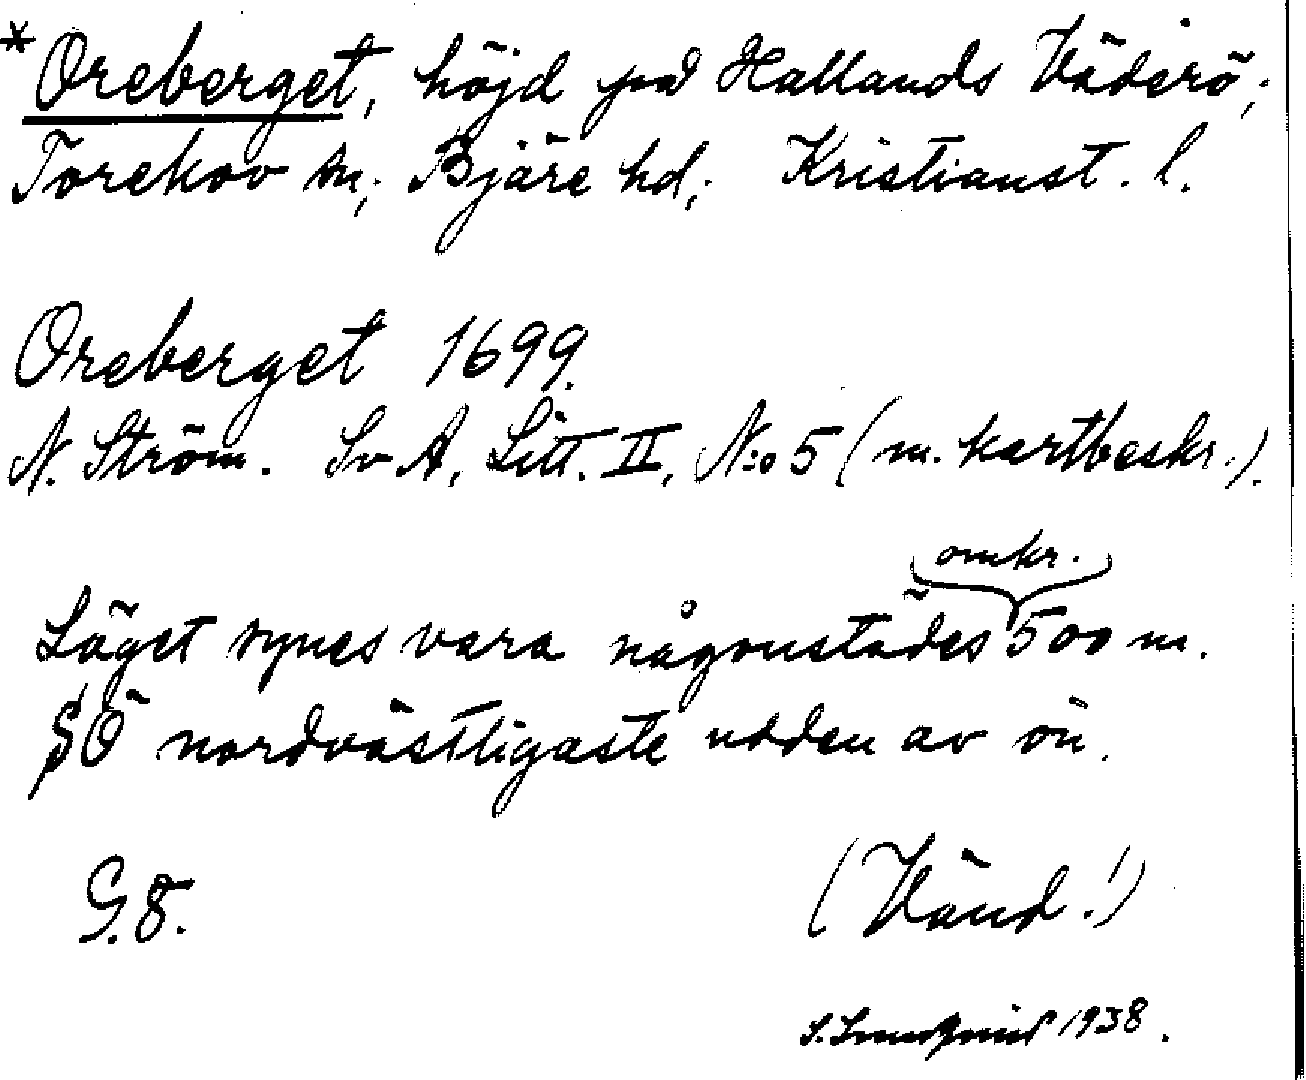 *Oreberget, höjd på Hallands Väderö;
Torekov sn; Bjäre hd; Kristianst. l.
Oreberget 1699.
N. Ström. Sv A, Litt. II, N:o 5 (m. kartbeskr.).
omkr.
Läget synes vara någonstädes 500 m.
SÖ nordvästligaste udden av ön.
G. 8.
(Vänd!)
S. Lundqvist 1938.